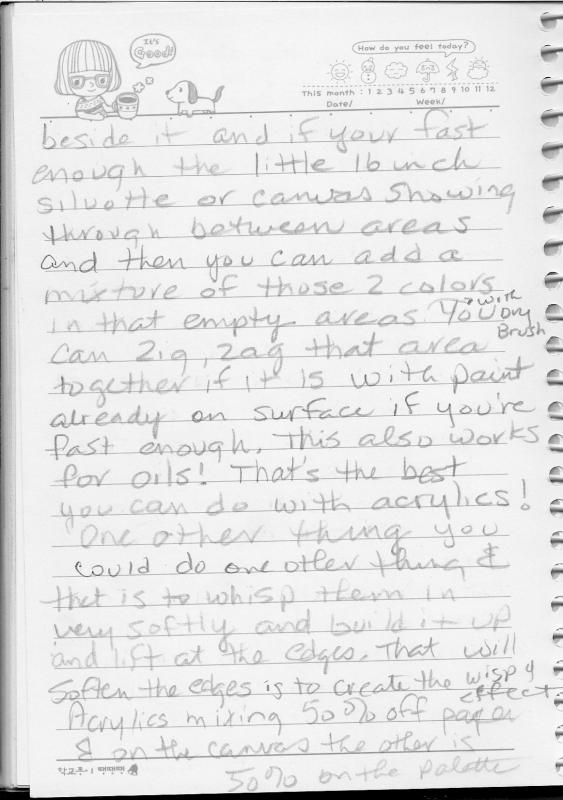 It's Good!
How do you feel today?
This month : 1 2 3 4 5 6 7 8 9 10 11 12
Date/ Week/
beside it and if your fast
enough the little 16 inch
siluotte or canvas showing
through between areas
and then you can add a
mixture of those 2 colors
in that empty areas. You with Dry Brush
can zig, zag that area
together if it is with paint
already on surface if you're
fast enough. This also works
for oils! That's the best
you can do with acrylics!
One other thing you
could do one other thing &
that is to whisp them in
very softly and build it up
and lift at the edges. That will
soften the edges is to create the wispy effect
Acrylics mixing 50% off paper
& on the canvas the other is
50% on the palette